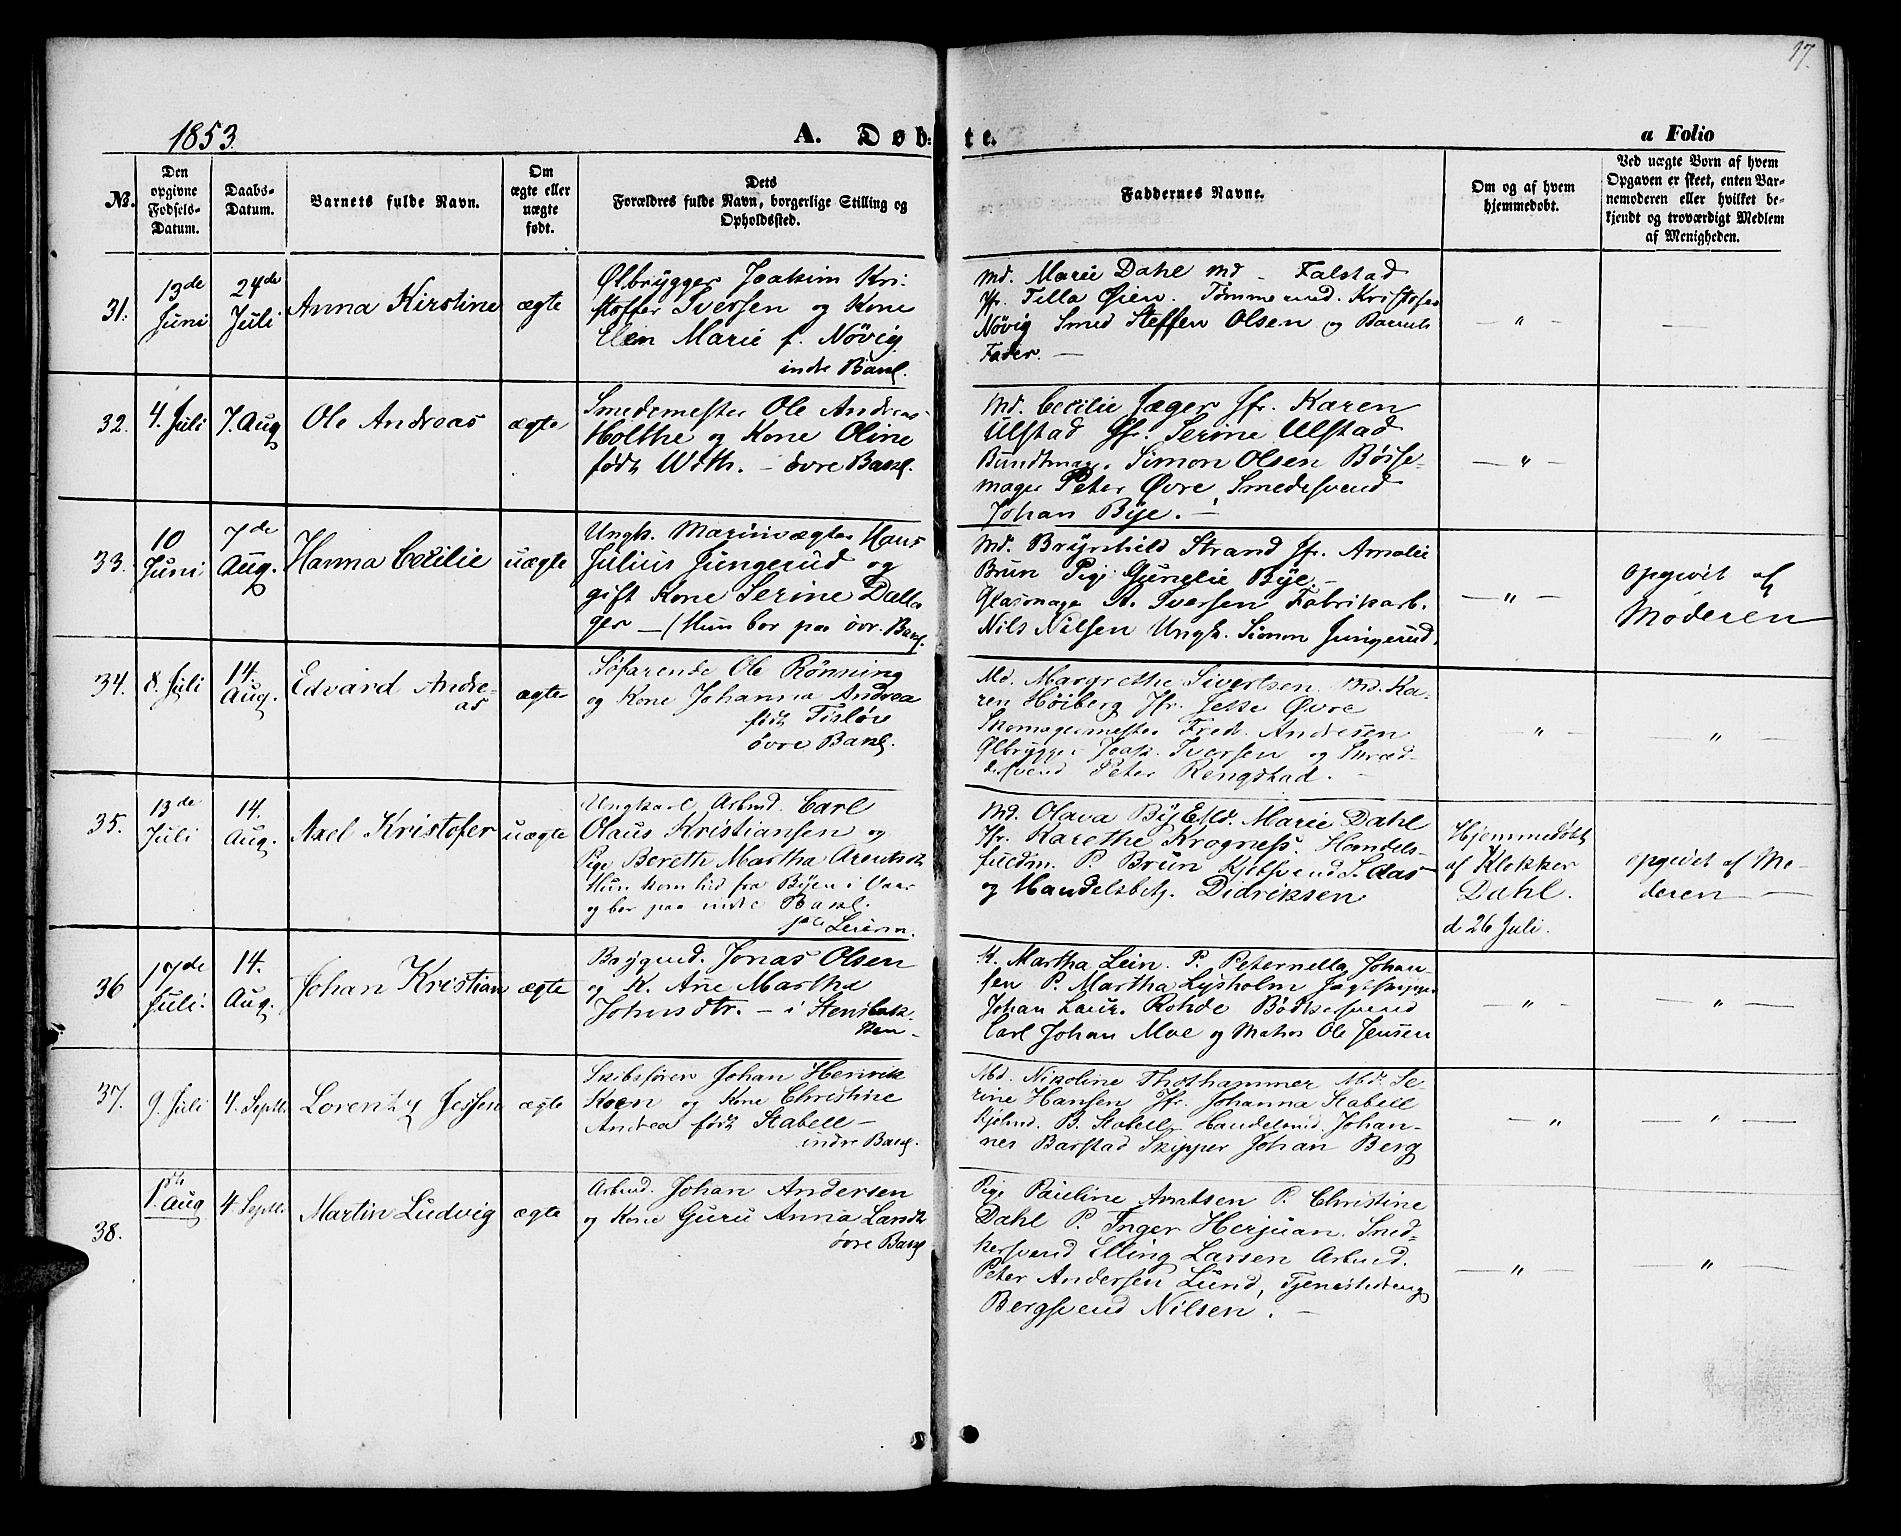 17.
1853.
A. Døb-
te.
a Folio
No.
Den
opgivne
Fødsels-
Datum.
Daabs-
Datum.
Barnets fulde Navn.
Om
ægte eller
uægte
født.
Dets
Forældres fulde Navn, borgerlige Stilling og
Opholdssted.
Faddernes Navne.
Om og af hvem
hjemmedøbt.
Ved uægte Børn af hvem
Opgaven er skeet, enten Bar-
nemoderen eller hvilket be-
kjendt og troværdigt Medlem
af Menigheden.
31.
13de
Juni
24de
Juli
Anna Kirstine
ægte
Ølbrygger Joakim Kri-
stoffer Iversen og Kone
Elen Marie f. Növig
indre Bakl.
Md. Marie Dahl Md - Falstad
Jfr. Tilla Øien. Tømmermd. Kristofer
Növig Smed Steffen Olsen og Barnets
Fader. —
— " —
—
32.
4. Juli
7. Aug
Ole Andreas
ægte
Smedemester Ole Andreas
Holthe og Kone Oline
födt Wdth. — övre Bakl.
Md. Cecilie Jæger Jfr. Karen
Ulstad Jfr. Serine Ulstad
Bundtmag. Simon Olsen Bösse-
mager Peter Øvre, Smedesvend
Johan Bye. —
— " —
33.
10
Juni
7de
Aug.
Hanna Cecilie
uægte
Ungk. Marinvægter Hans
Julius Jungerud og
gift Kone Serine Dalla
ger — (Hun bor paa övr. Bakl.
Md. Brynhild Strand Jfr. Amalie
Brun Pige Gunelie Bye. —
Glasmage A. Iversen Fabrikarb.
Nils Nilsen Ungk. Simon Jungerud.
— " —
opgivet af
Moderen
34.
8. Juli
14.
Aug.
Edvard Andre-
as
ægte
Söfarende Ole Rönning
og Kone Johanna Andrea
födt Fislöre
övre Bakl.
Md. Margrethe Sivertsen Md. Ka-
ren Höiberg Jfr. Jette Øvre
Skomagermester Fred. Andresen
Ølbrygger Joak. Iversen og Skræd-
dersvend Peter Rengstad. —
— " —
— " —
35.
13de
Juli
14.
Aug.
Axel Kristofer
uægte
Ungkarl Arbmd. Carl
Olaus Kristiansen og
Pige Bereth Martha Arentsdt
Hun kom hid fra Byen i Vaar
og bor paa indre Bakl.
Leierm.
Md. Olava Bye Md. Marie Dahl
Jfr. Karethe Krogness. Handels-
fuldm. P. Brun Kjelsvend S. Aas
og Handelsbetj. Didriksen
Hjemmedøbt
af Klokker
Dahl.
d 26 Juli.
opgivet af Mo-
deren —
36
17de
Juli.
14.
Aug.
Johan Kristian
ægte
Bÿgmd. Jonas Olsen
og K. Ane Martha
Johnsdtr. — i Stensbak-
ken —
K. Martha Lein. P. Peternella Johan-
sen P. Martha Lysholm Jagtskipper
Johan Laur. Rohde Bödkersvend
Carl Johan Moe og Matros Ole Jensen
— " —
— " —
37.
9. Juli
4. Septb.
Lorentz Jessen
ægte
Skibsförer Johan Henrik
Koen og Kone Christine
Andrea födt Stabell —
indre Bakl.
Md. Nikoline Thothammer Md. Se-
rine Hansen Jfr. Johanna Stabell
Kjøbmd. B. Stabell Handelsmd. Johan-
nes Barstad Skipper Johan Berg
— "
— " —
38.
1ste
Aug
4 Septb.
Martin Ludvig
ægte
Arbmd. Johan Andersen
og Kone Guru Anna Landt
övre Bakl
Pige Pauline Arntsen P. Christine
Dahl P. Inger Herjuan. Sned-
kersvend Elling Larsen Arbmd.
Peter Andersen Lund, Tjenestedreng
Bergsvend Nilsen. —
— " —
— " —